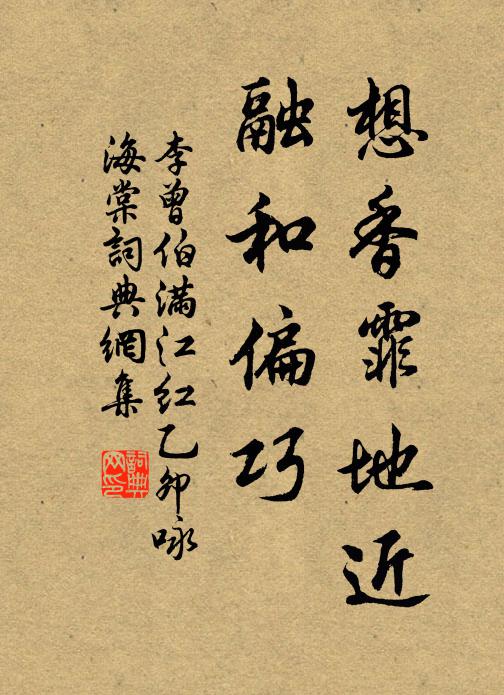 想香霏地近
融和偏巧
李曾伯满江红乙卯咏
海棠詞典網集
詞典网印